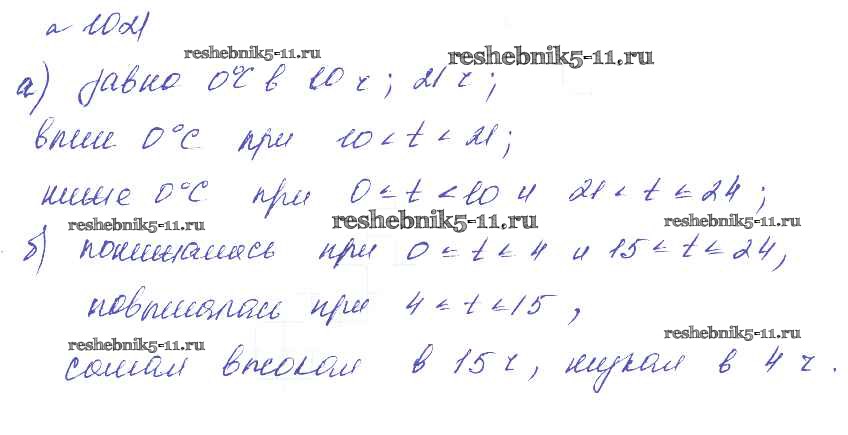 № 1021
reshebnik5-11.ru
reshebnik5-11.ru
а) равно 0°С в 10 ч; 21 ч;
выше 0°С при 10 < t < 21;
ниже 0°С при 0 ≤ t < 10 и 21 < t ≤ 24;
reshebnik5-11.ru
reshebnik5-11.ru
reshebnik5-11.ru
б) понижалась при 0 ≤ t ≤ 4 и 15 ≤ t ≤ 24,
повышалась при 4 ≤ t ≤ 15,
reshebnik5-11.ru
reshebnik5-11.ru
самая высокая в 15 ч, низкая в 4 ч.